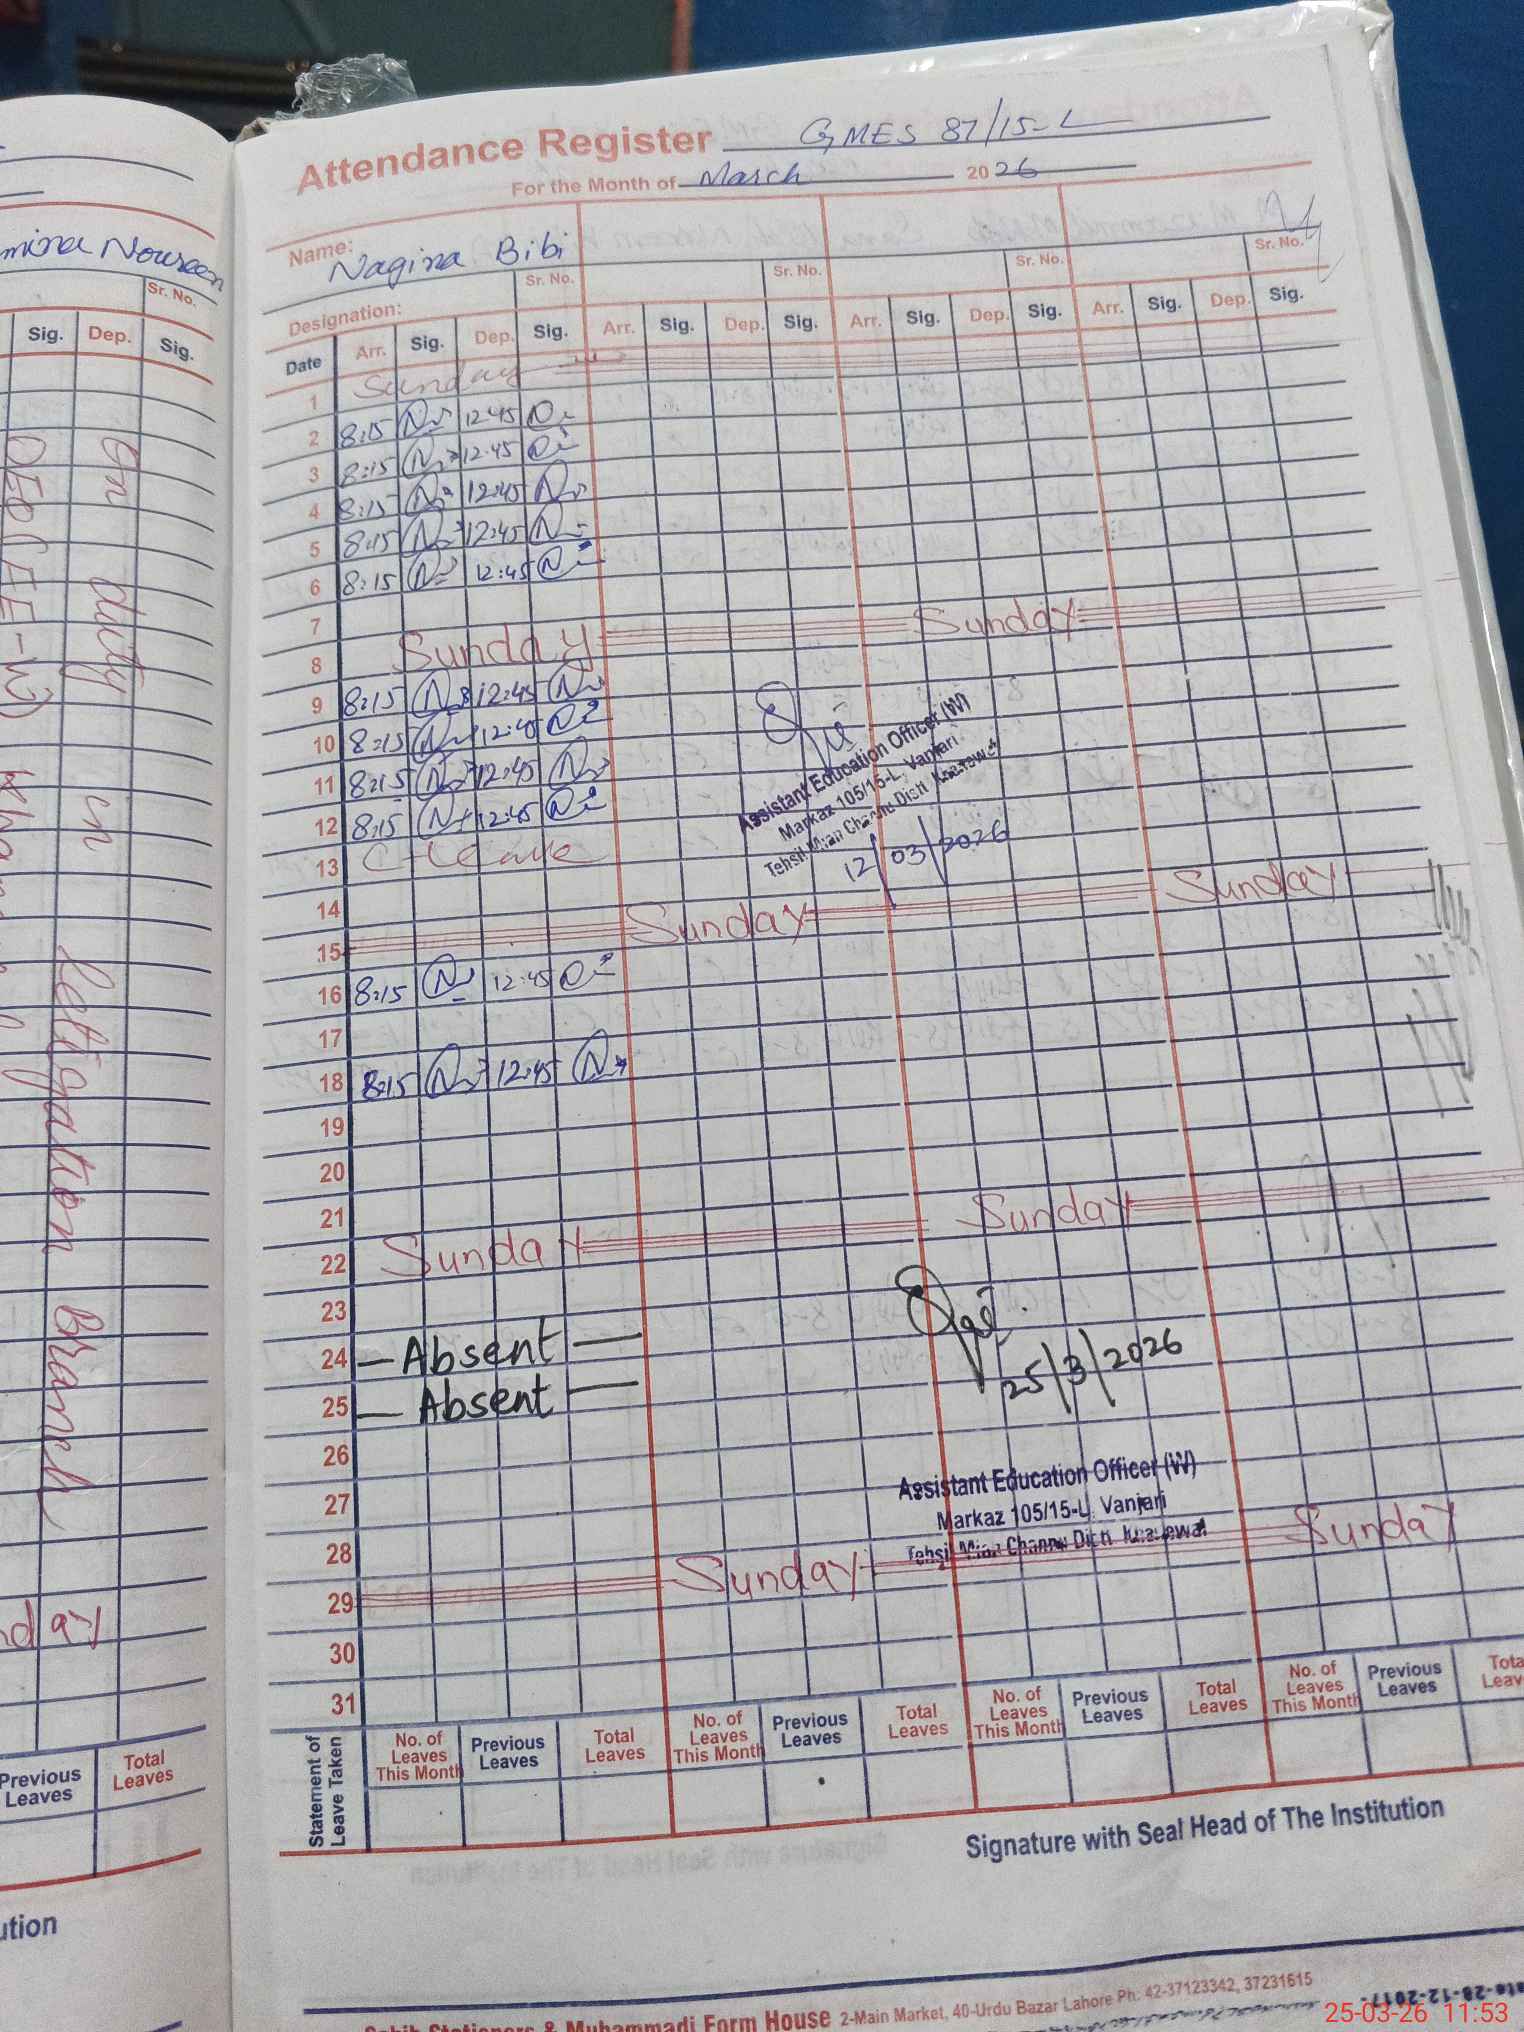 mina Noureen
Sr. No.
Sig. Dep. Sig.
On duty in
DEO (EE-W)
Letigation Branch
Previous Leaves
Total Leaves
Attendance Register GMES 87/15-L
For the Month of March 2026
Name: Nagina Bibi
Sr. No. Sr. No. Sr. No. Sr. No.
Designation:
Date Arr. Sig. Dep. Sig. Arr. Sig. Dep. Sig. Arr. Sig. Dep. Sig. Arr. Sig. Dep. Sig.
1 Sunday
2 8:15 12:45
3 8:15 12:45
4 8:15 12:45
5 8:15 12:45
6 8:15 12:45
7
8 Sunday Sunday
9 8:15 12:45
10 8:15 12:45
11 8:15 12:45
12 8:15 12:45
Assistant Education Officer (W)
Markaz 105/15-L, Vanjari
Tehsil Mian Channu Distt
12/03/2026
13 C-Leave
14
15 Sunday Sunday
16 8:15 12:45
17
18 8:15 12:45
19
20
21
22 Sunday Sunday
23
24 — Absent —
25 — Absent —
25/3/2026
26
27
Assistant Education Officer (W)
Markaz 105/15-L, Vanjari
Tehsil Mian Channu
28
29 Sunday Sunday
30
31
Statement of Leave Taken
No. of Leaves This Month Previous Leaves Total Leaves No. of Leaves This Month Previous Leaves Total Leaves No. of Leaves This Month Previous Leaves Total Leaves No. of Leaves This Month Previous Leaves
Signature with Seal Head of The Institution
Stationers & Muhammadi Form House 2-Main Market, 40-Urdu Bazar Lahore Ph: 42-37123342, 37231615
25-03-26 11:53